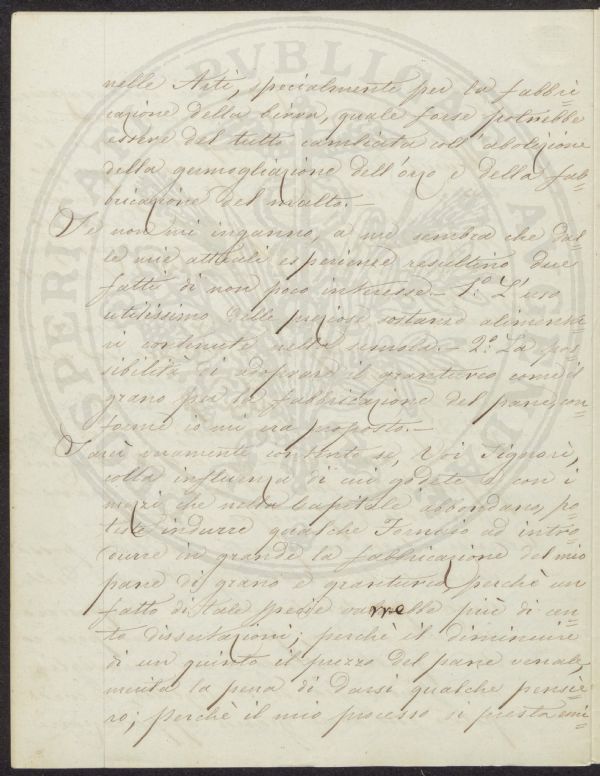 nelle Arti, specialmente per la fabbri=
cazione della birra, quale forse potrebbe
essere del tutto cambiata coll'abolizione
della germogliazione dell'orzo e della fab=
bricazione del malto.—
Se non mi inganno, a me sembra che dal=
le mie attuali esperienze resultino due
fatti di non poco interesse.— 1.º L'uso
utilissimo delle preziose sostanze alimenta=
ri contenute nella semola.— 2.º La pos=
sibilità di adoprare il granturco come il
grano per la fabbricazione del pane, con=
forme io mi era proposto.—
Sarei veramente contento se, Voi Signori,
colla influenza di cui godete e con i
mezzi che nella Capitale abbondano, po=
teste indurre qualche Fornaio ad intro=
durre in grande la fabbricazione del mio
pane di grano e granturco, perchè un
fatto di tale specie varrebbe più di cen=
to dissertazioni; perchè il diminuire
di un quinto il prezzo del pane venale,
merita la pena di darsi qualche pensie=
ro; perchè il mio processo si presta emi=
PVBLICAE